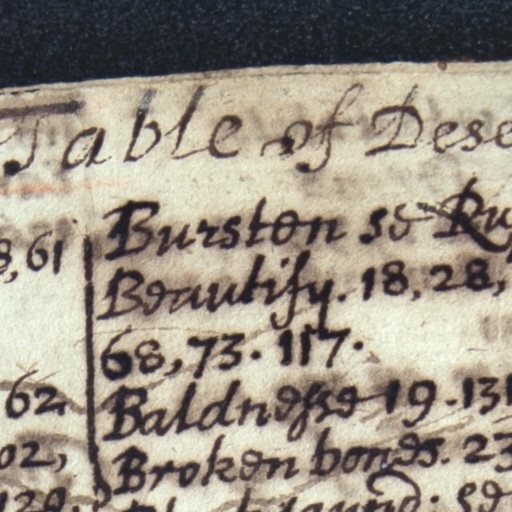 Table of Dese
8,61 Bursten se Ru
Beautify. 18, 28,
68, 73. 117.
62 Baldnesse 19. 131
02, Broken bones. 23